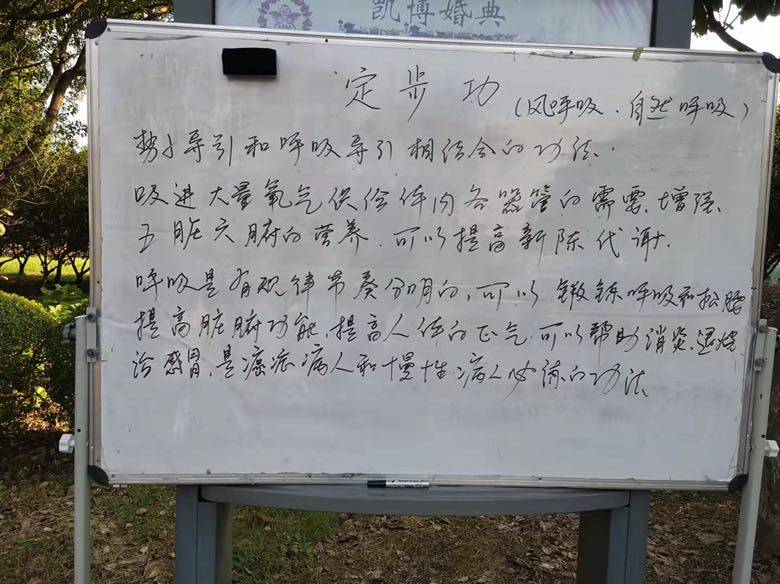 凯博婚典
定步功 (风呼吸、自然呼吸)
势子导引和呼吸导引相结合的功法、
吸进大量氧气供给体内各器管的需要、增强、
五脏六腑的营养、可以提高新陈代谢、
呼吸是有规律节奏分明的,可以锻练呼吸和松腰
提高脏腑功能,提高人体的正气、可以帮助消炎、退烧、
治感冒,是癌症病人和慢性病人必练的功法